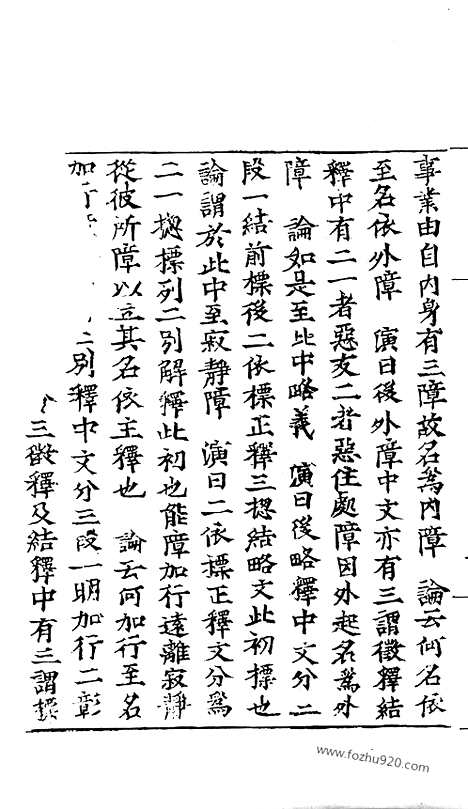 事業由自內身有三障故名為內障　論云何名依
至名依外障　演曰後外障中文亦有三謂徵釋結
釋中有二一者惡友二者惡住處障因外起名為外
障　論如是至此中略義　演曰後略釋中文分二
段一結前標後二依標正釋三揔結略文此初標也
論謂於此中至寂靜障　演曰二依標正釋文分為
二一揔標列二別解釋此初也能障加行遠離寂靜
從彼所障以立其名依主釋也　論云何加行至名
加行
二別釋中文分三段一明加行二彰
三徵釋及結釋中有三謂標
www.fozhu920.com